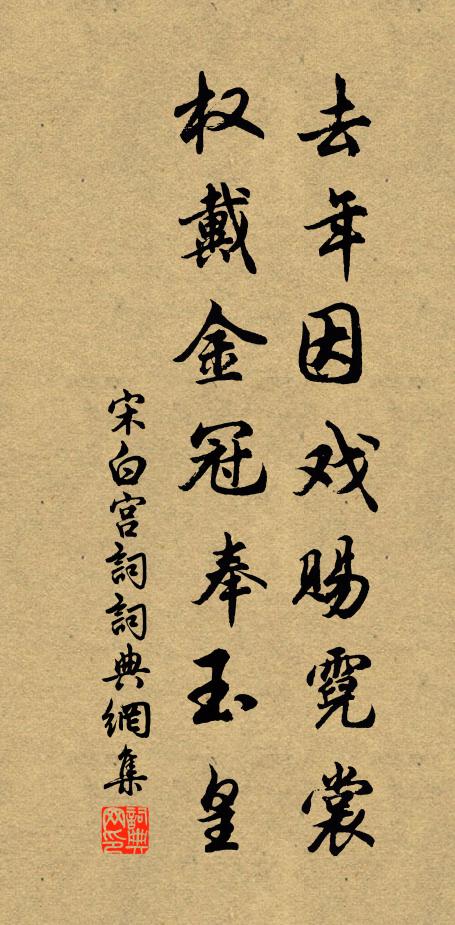 去年因戏赐霓裳
权戴金冠奉玉皇
宋白宫詞詞典網集
詞典網印